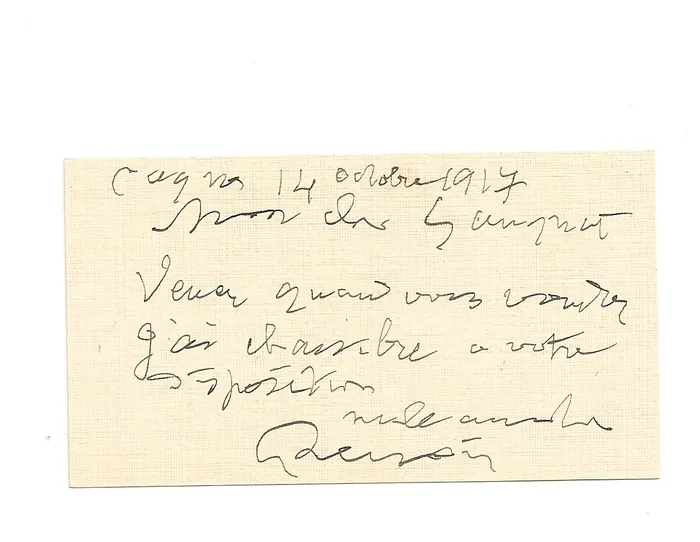 Cagnes 14 octobre 1917
Mon cher Gangnat
Venez quand vous voudrez
J'ai chambre a votre
disposition
mille amitiés
Renoir